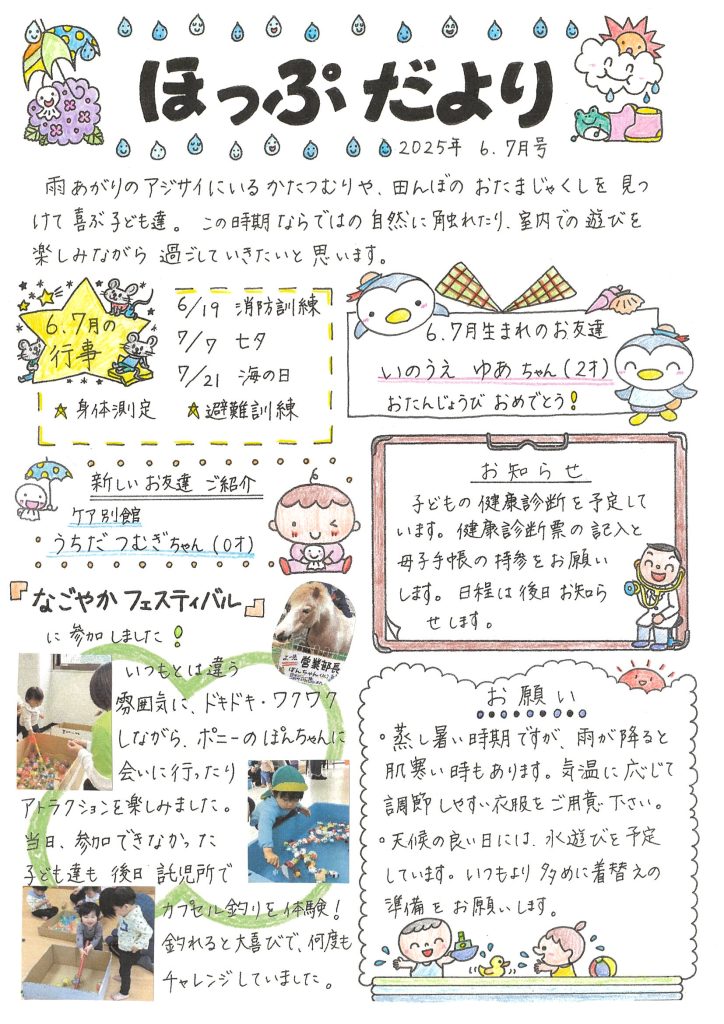 ほっぷだより
2025年 6.7月号
雨あがりのアジサイにいるかたつむりや、田んぼの おたまじゃくしを 見つ
けて 喜ぶ子ども達。 この時期ならではの自然に触れたり、室内での遊びを
楽しみながら 過ごしていきたいと 思います。
6.7月の
行事
6/19 消防訓練
7/7 七夕
7/21 海の日
★身体測定 ★避難訓練
6.7月生まれのお友達
いのうえ ゆあちゃん(2才)
おたんじょうび おめでとう!
新しいお友達 ご紹介
ケア別館
うちだ つむぎちゃん(0才)
お知らせ
子どもの健康診断を予定して
います。健康診断票の記入と
母子手帳の持参をお願い
します。日程は後日お知ら
せします。
『なごやかフェスティバル』
に参加しました!
営業部長
ぽんちゃん
いつもとは違う
雰囲気に、ドキドキ・ワクワク
しながら、ポニーのぽんちゃんに
会いに行ったり
アトラクションを楽しみました。
当日、参加できなかった
子ども達も 後日 託児所で
カプセル釣りを体験!
釣れると大喜びで、何度も
チャレンジしていました。
お願い
。蒸し暑い時期ですが、雨が降ると
肌寒い時もあります。気温に応じて
調節しやすい衣服をご用意下さい。
。天候の良い日には、水遊びを予定
しています。いつもより多めに着替えの
準備をお願いします。